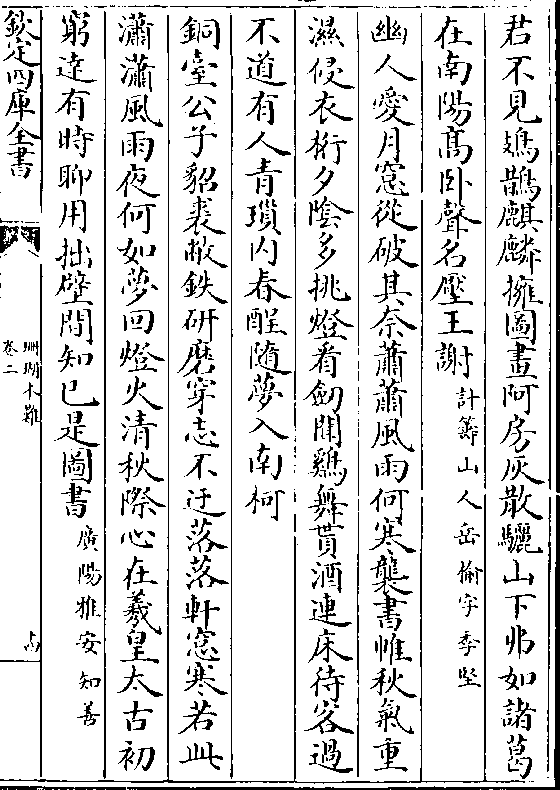 君不見鳷鵲麒麟擁圖畫阿房灰散驪山下那如諸葛
在南陽髙卧聲名壓王謝計籌山人岳榆字季堅
幽人愛月窓從破其奈蕭蕭風雨何寒襲書帷秋氣重
濕侵衣桁夕陰多挑燈看劍聞鷄舞貰酒連床待客過
不道有人青瑣内春酲随夢入南柯
銅臺公子貂裘敝鉄硏磨穿志不迂落落軒窓寒若此
瀟瀟風雨夜何如夢回燈火清秋際心在羲皇太古初
窮達有時聊用拙壁間知已是圖書廣陽雅安知善
欽定四庫全書
珊瑚木難
卷二